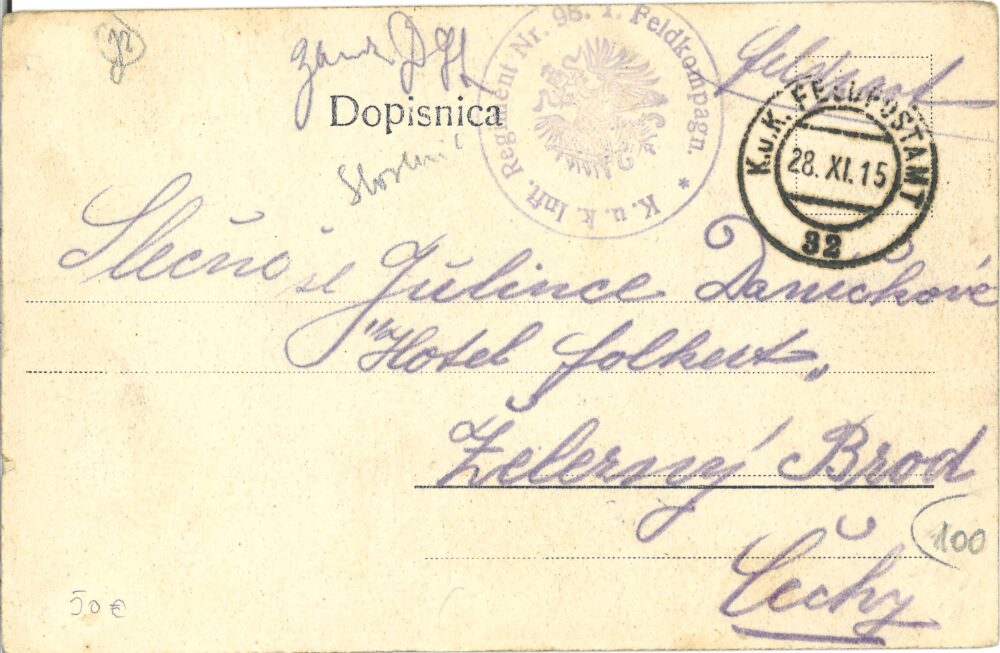 Feldpost
Dopisnica
K. u. k. Inft. Regiment Nr. 95. 1. Feldkompagn. *
K.u.K. FELDPOSTAMT
28. XI. 15
32
Slečno sl Julince Danickové
"Hotel
Železný Brod
Čechy
100
50 €